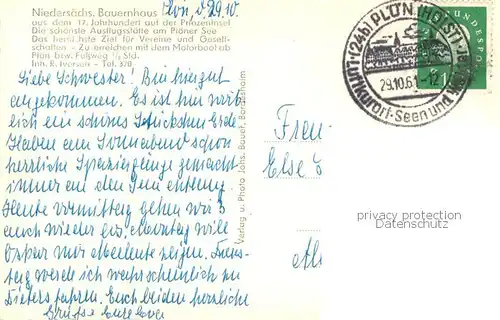 Niedersächs. Bauernhaus
aus dem 17. Jahrhundert auf der Prinzeninsel
Die schönste Ausflugstätte am Plöner See
Das herrlichste Ziel für Vereine und Gesell-
schaften - Zu erreichen mit dem Motorboot ab
Plön bzw. Fußweg ½ Std.
Inh. R. - Tel. 378
Plön, d. 29.10.
Liebe Schwester! Bin hier gut
angekommen. Es ist hier wirk-
lich ein schönes Stückchen Erde.
Haben am Sonnabend schon
herrliche Spaziergänge gemacht
immer auf den See entlang.
Heute vormittag gehen wir 3
auch wieder los. Montag will
mir zeigen. Diens-
tag werde ich wahrscheinlich zu
fahren. Euch beiden herzliche
Grüße Eure
Verlag u. Photo Johs. Bauer, Bordesholm
(24b) PLÖN (HOLST)
29.10.61.-12
Luftkurort-Seen und
BUNDESPOST
Frau
Else
privacy protection
Datenschutz